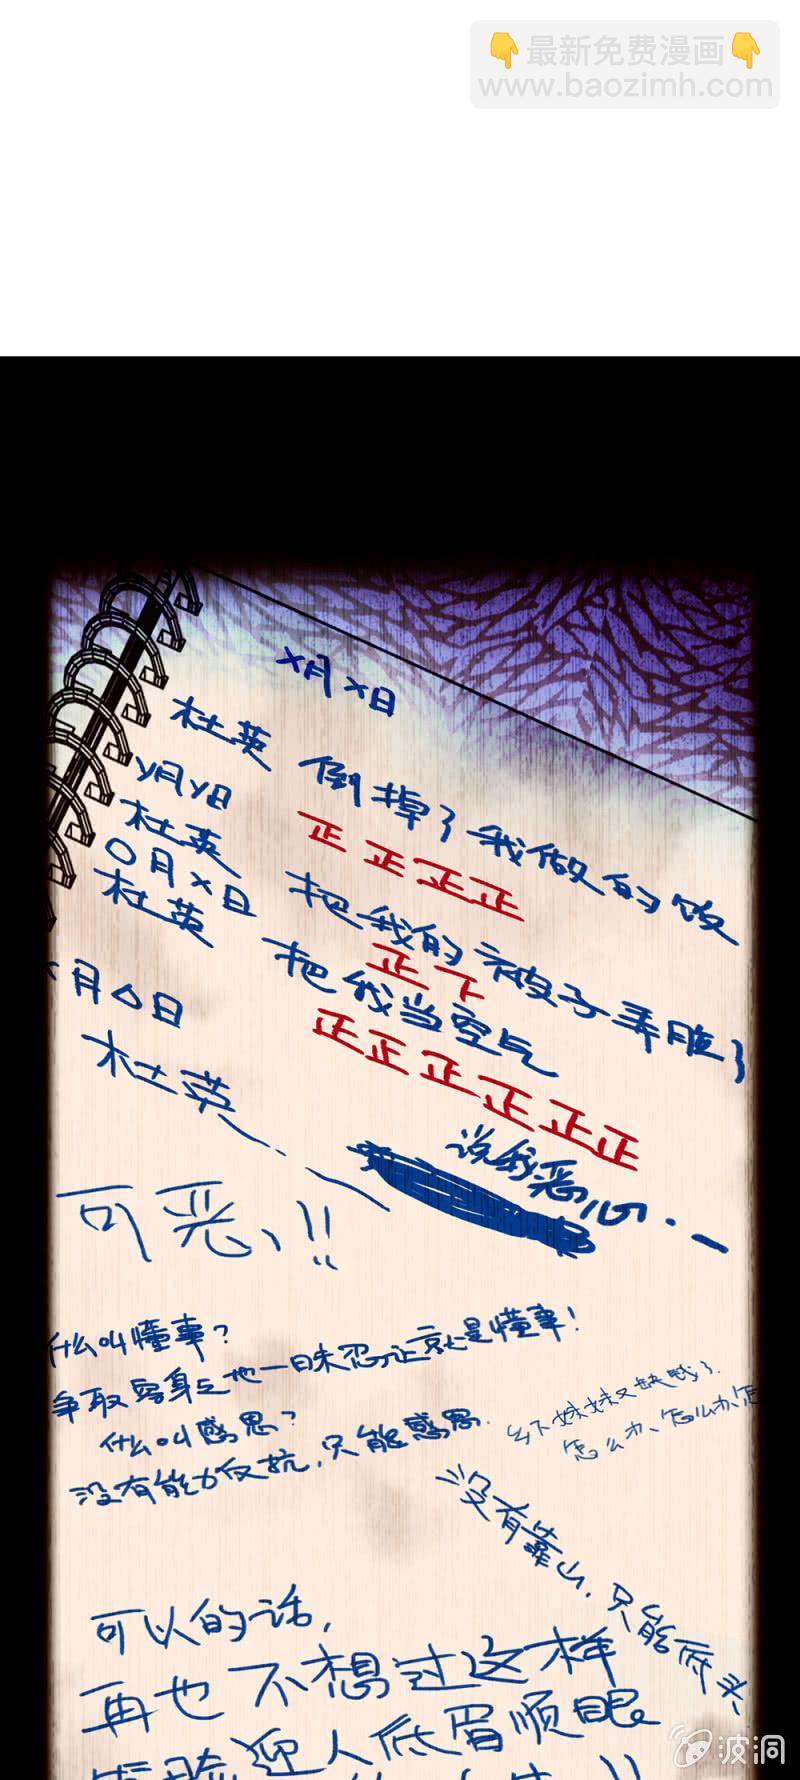 👇最新免费漫画👇
www.baozimh.com
X月X日
杜英 倒掉了我做的饭
正正正正
Y月Y日
杜英 把我的被子弄脏了
正下
O月X日
杜英 把我当空气
正正正正正正
X月△日
杜英 说我恶心
可恶!!
什么叫懂事?
争取 一日 忍 就是懂事!
什么叫感恩?
没有能力反抗,只能感恩.
乡下妹妹又缺钱了.
怎么办、怎么办、怎
没有靠山,只能低头
可以的话,
再也不想过这样
迎人低眉顺眼
波洞